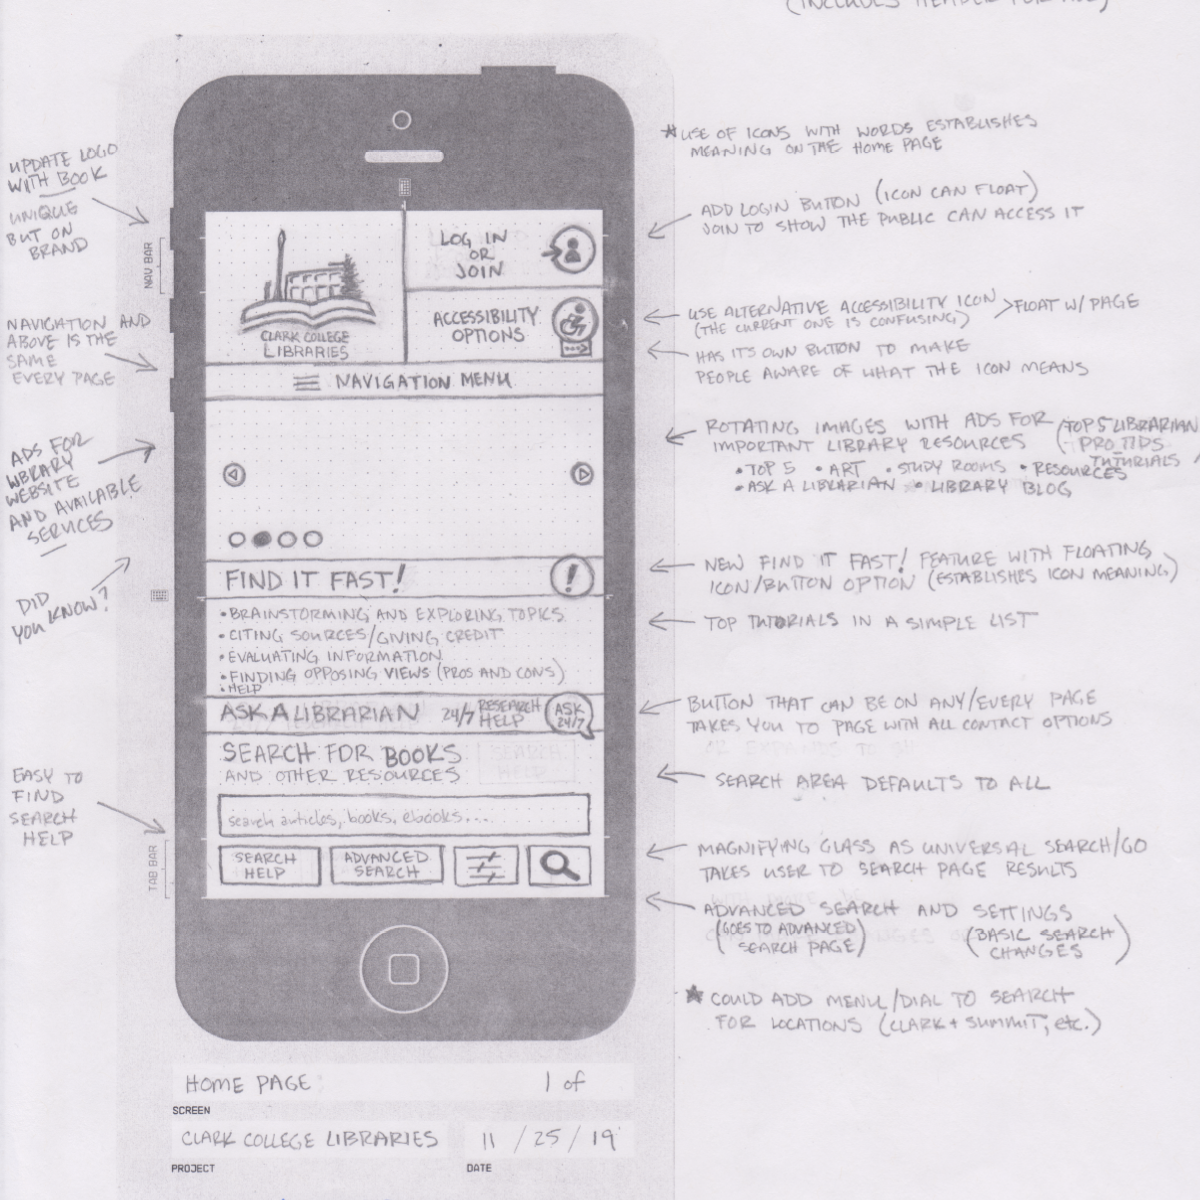 (INCLUDES HEADER FOR ALL)
UPDATE LOGO
WITH BOOK
UNIQUE
BUT ON
BRAND
NAVIGATION AND
ABOVE IS THE
SAME
EVERY PAGE
ADS FOR
LIBRARY
WEBSITE
AND AVAILABLE
SERVICES
DID
YOU KNOW?
EASY TO
FIND
SEARCH
HELP
NAV BAR
TAB BAR
CLARK COLLEGE
LIBRARIES
LOG IN
OR
JOIN
ACCESSIBILITY
OPTIONS
NAVIGATION MENU
FIND IT FAST!
!
• BRAINSTORMING AND EXPLORING TOPICS
• CITING SOURCES/GIVING CREDIT
• EVALUATING INFORMATION
• FINDING OPPOSING VIEWS (PROS AND CONS)
• HELP
ASK A LIBRARIAN
24/7 RESEARCH
HELP
ASK
24/7
SEARCH FOR BOOKS
AND OTHER RESOURCES
search articles, books, ebooks...
SEARCH
HELP
ADVANCED
SEARCH
★ USE OF ICONS WITH WORDS ESTABLISHES
MEANING ON THE HOME PAGE
ADD LOGIN BUTTON (ICON CAN FLOAT)
JOIN TO SHOW THE PUBLIC CAN ACCESS IT
USE ALTERNATIVE ACCESSIBILITY ICON > FLOAT W/ PAGE
(THE CURRENT ONE IS CONFUSING)
HAS ITS OWN BUTTON TO MAKE
PEOPLE AWARE OF WHAT THE ICON MEANS
ROTATING IMAGES WITH ADS FOR
IMPORTANT LIBRARY RESOURCES
(TOP 5 LIBRARIAN
PRO TIPS
TUTORIALS
• TOP 5 • ART • STUDY ROOMS • RESOURCES
• ASK A LIBRARIAN • LIBRARY BLOG
NEW FIND IT FAST! FEATURE WITH FLOATING
ICON/BUTTON OPTION (ESTABLISHES ICON MEANING)
TOP TUTORIALS IN A SIMPLE LIST
BUTTON THAT CAN BE ON ANY/EVERY PAGE
TAKES YOU TO PAGE WITH ALL CONTACT OPTIONS
SEARCH AREA DEFAULTS TO ALL
MAGNIFYING GLASS AS UNIVERSAL SEARCH/GO
TAKES USER TO SEARCH PAGE RESULTS
ADVANCED SEARCH AND SETTINGS
(GOES TO ADVANCED
SEARCH PAGE)
(BASIC SEARCH
CHANGES)
★ COULD ADD MENU/DIAL TO SEARCH
FOR LOCATIONS (CLARK + SUMMIT, etc.)
HOME PAGE
1 of
SCREEN
CLARK COLLEGE LIBRARIES
11 / 25 / 19
PROJECT
DATE